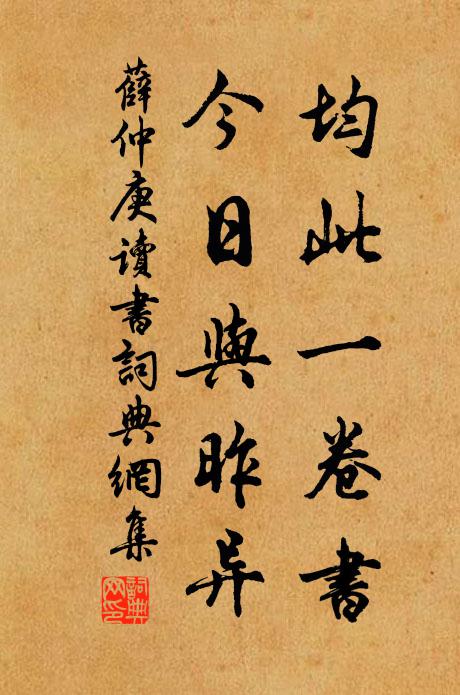 均此一卷書
今日與昨异
薛仲庚讀書詞典網集
詞典網印